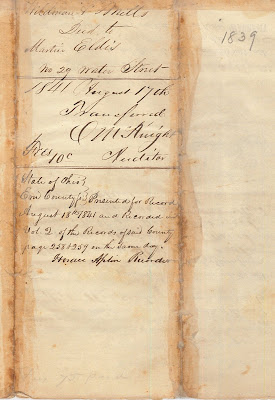 & Mills
Deed to
Martin Eldis
No 29 Water Street
1839
1841 August 17th
Transferred
McKnight
Fees 10c Auditor
State of Ohio
Erie County Presented for Record
August 18th 1841 and Recorded in
Vol 2 of the Records of said County
page 258 & 259 on the same day.
Horace Recorder